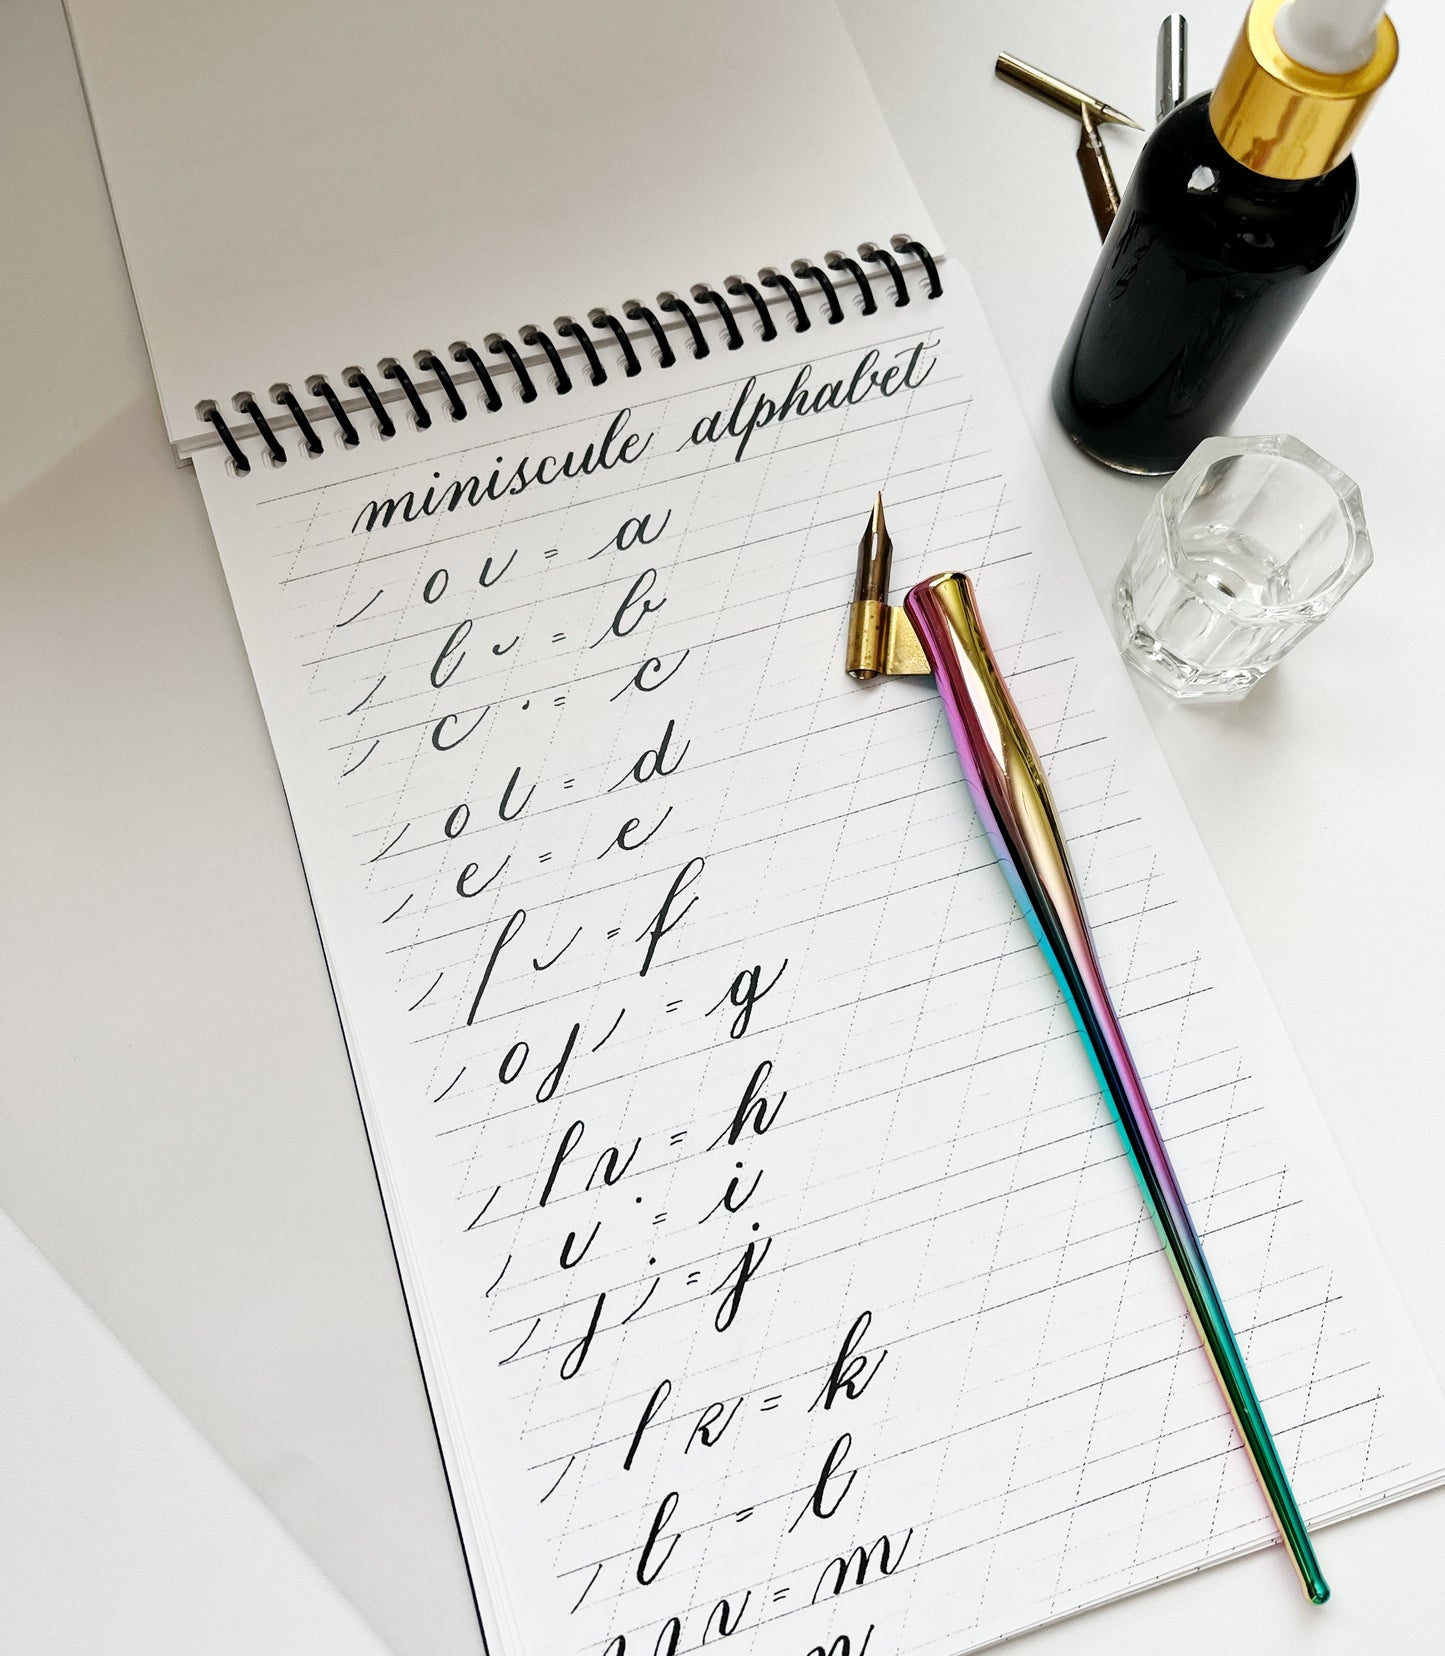 miniscule alphabet
/ o ι = a
l ᴗ = b
/ c · = c
/ o l = d
/ e = e
/ l ᴗ = f
/ o j / = g
/ l n = h
/ ι · = i
/ j / · = j
/ l r = k
/ l = l
n n = m
n